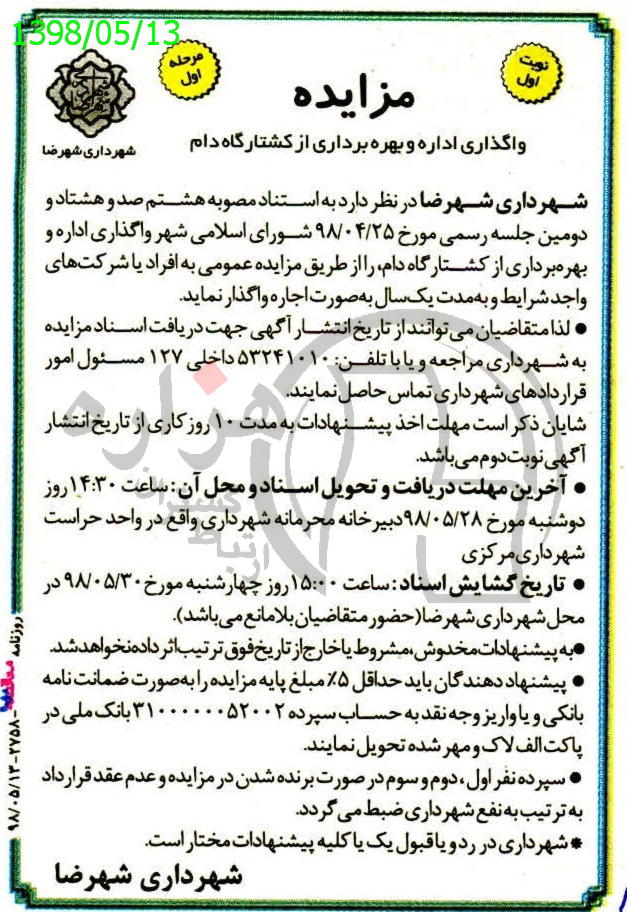 1398/05/13
مرحله اول
نوبت اول
مزایده
شهرداری شهرضا
واگذاری اداره و بهره برداری از کشتارگاه دام
شهرداری شهرضا در نظر دارد به استناد مصوبه هشتم صد و هشتاد و
دومین جلسه رسمی مورخ ۹۸/۰۴/۲۵ شورای اسلامی شهر واگذاری اداره و
بهره‌برداری از کشتارگاه دام، را از طریق مزایده عمومی به افراد یا شرکت‌های
واجد شرایط و به‌مدت یک‌سال به‌صورت اجاره واگذار نماید.
● لذا متقاضیان می توانند از تاریخ انتشار آگهی جهت دریافت اسناد مزایده
به شهرداری مراجعه و یا با تلفن: ۵۳۲۴۱۰۱۰ داخلی ۱۲۷ مسئول امور
قراردادهای شهرداری تماس حاصل نمایند.
شایان ذکر است مهلت اخذ پیشنهادات به مدت ۱۰ روز کاری از تاریخ انتشار
آگهی نوبت دوم می‌باشد.
● آخرین مهلت دریافت و تحویل اسناد و محل آن: ساعت ۱۴:۳۰ روز
دوشنبه مورخ ۹۸/۰۵/۲۸ دبیرخانه محرمانه شهرداری واقع در واحد حراست
شهرداری مرکزی
● تاریخ گشایش اسناد: ساعت ۱۵:۰۰ روز چهارشنبه مورخ ۹۸/۰۵/۳۰ در
محل شهرداری شهرضا (حضور متقاضیان بلامانع می باشد).
●به پیشنهادات مخدوش، مشروط یا خارج از تاریخ فوق ترتیب اثر داده نخواهد شد.
● پیشنهاد دهندگان باید حداقل ۵٪ مبلغ پایه مزایده را به‌صورت ضمانت نامه
بانکی و یا واریز وجه نقد به حساب سپرده ۳۱۰۰۰۰۰۰۵۲۰۰۲ بانک ملی در
پاکت الف لاک و مهر شده تحویل نمایند.
● سپرده نفر اول، دوم و سوم در صورت برنده شدن در مزایده و عدم عقد قرارداد
به ترتیب به نفع شهرداری ضبط می گردد.
*شهرداری در رد و یا قبول یک یا کلیه پیشنهادات مختار است.
شهرداری شهرضا
هزاره
روزنامه
۹۸/۰۵/۱۳-۲۷۵۸-